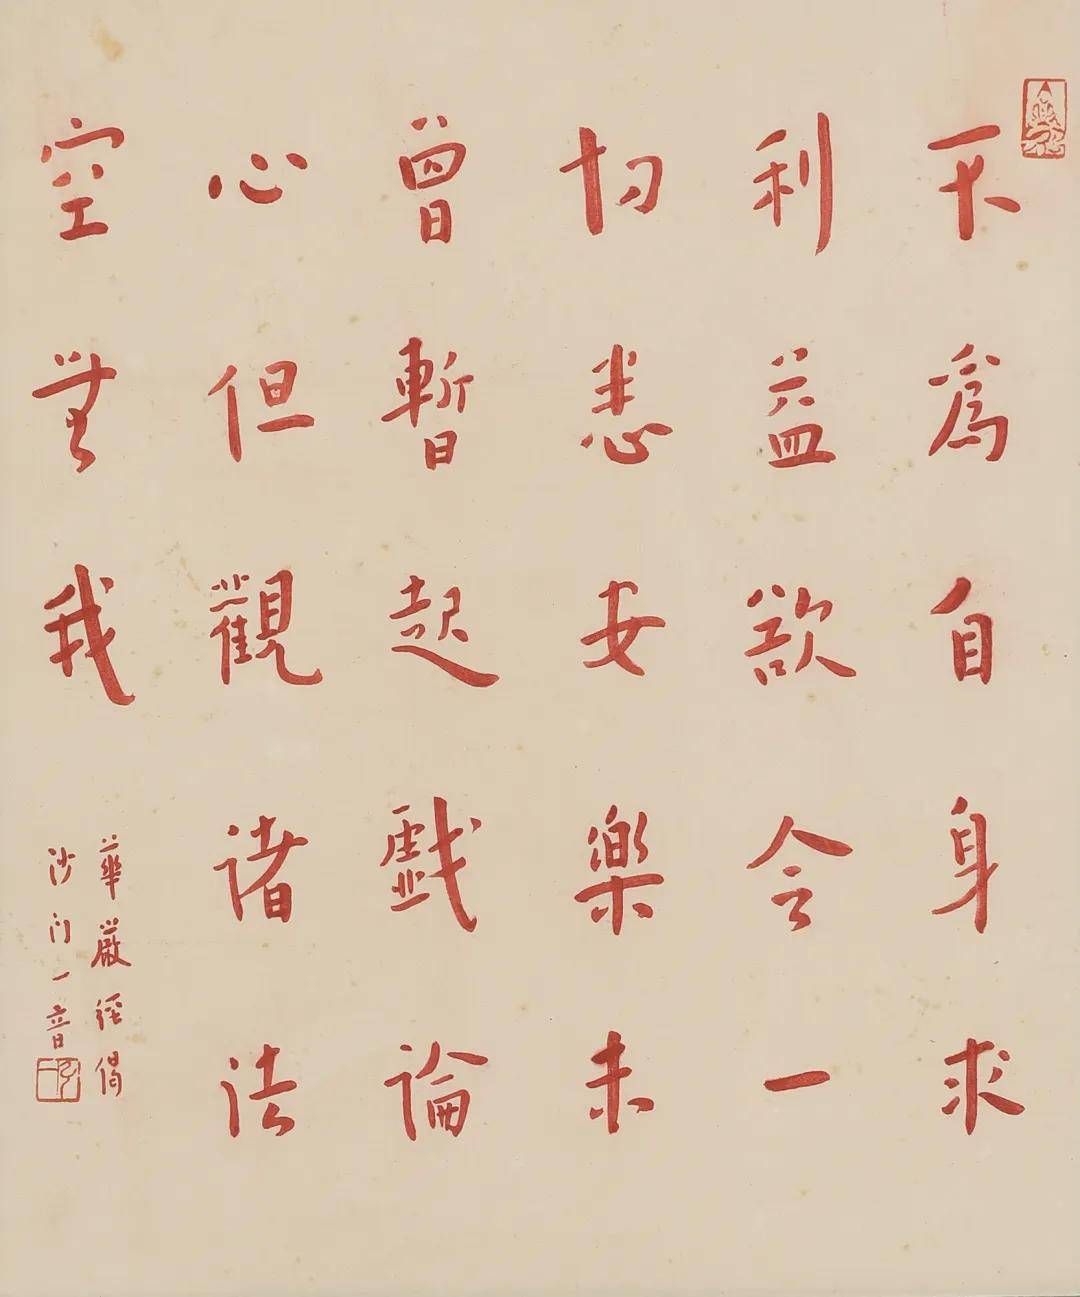 不為自身求
利益欲令一
切悉安樂未
曾暫起戲論
心但觀諸法
空無我
華嚴經偈
沙門一音